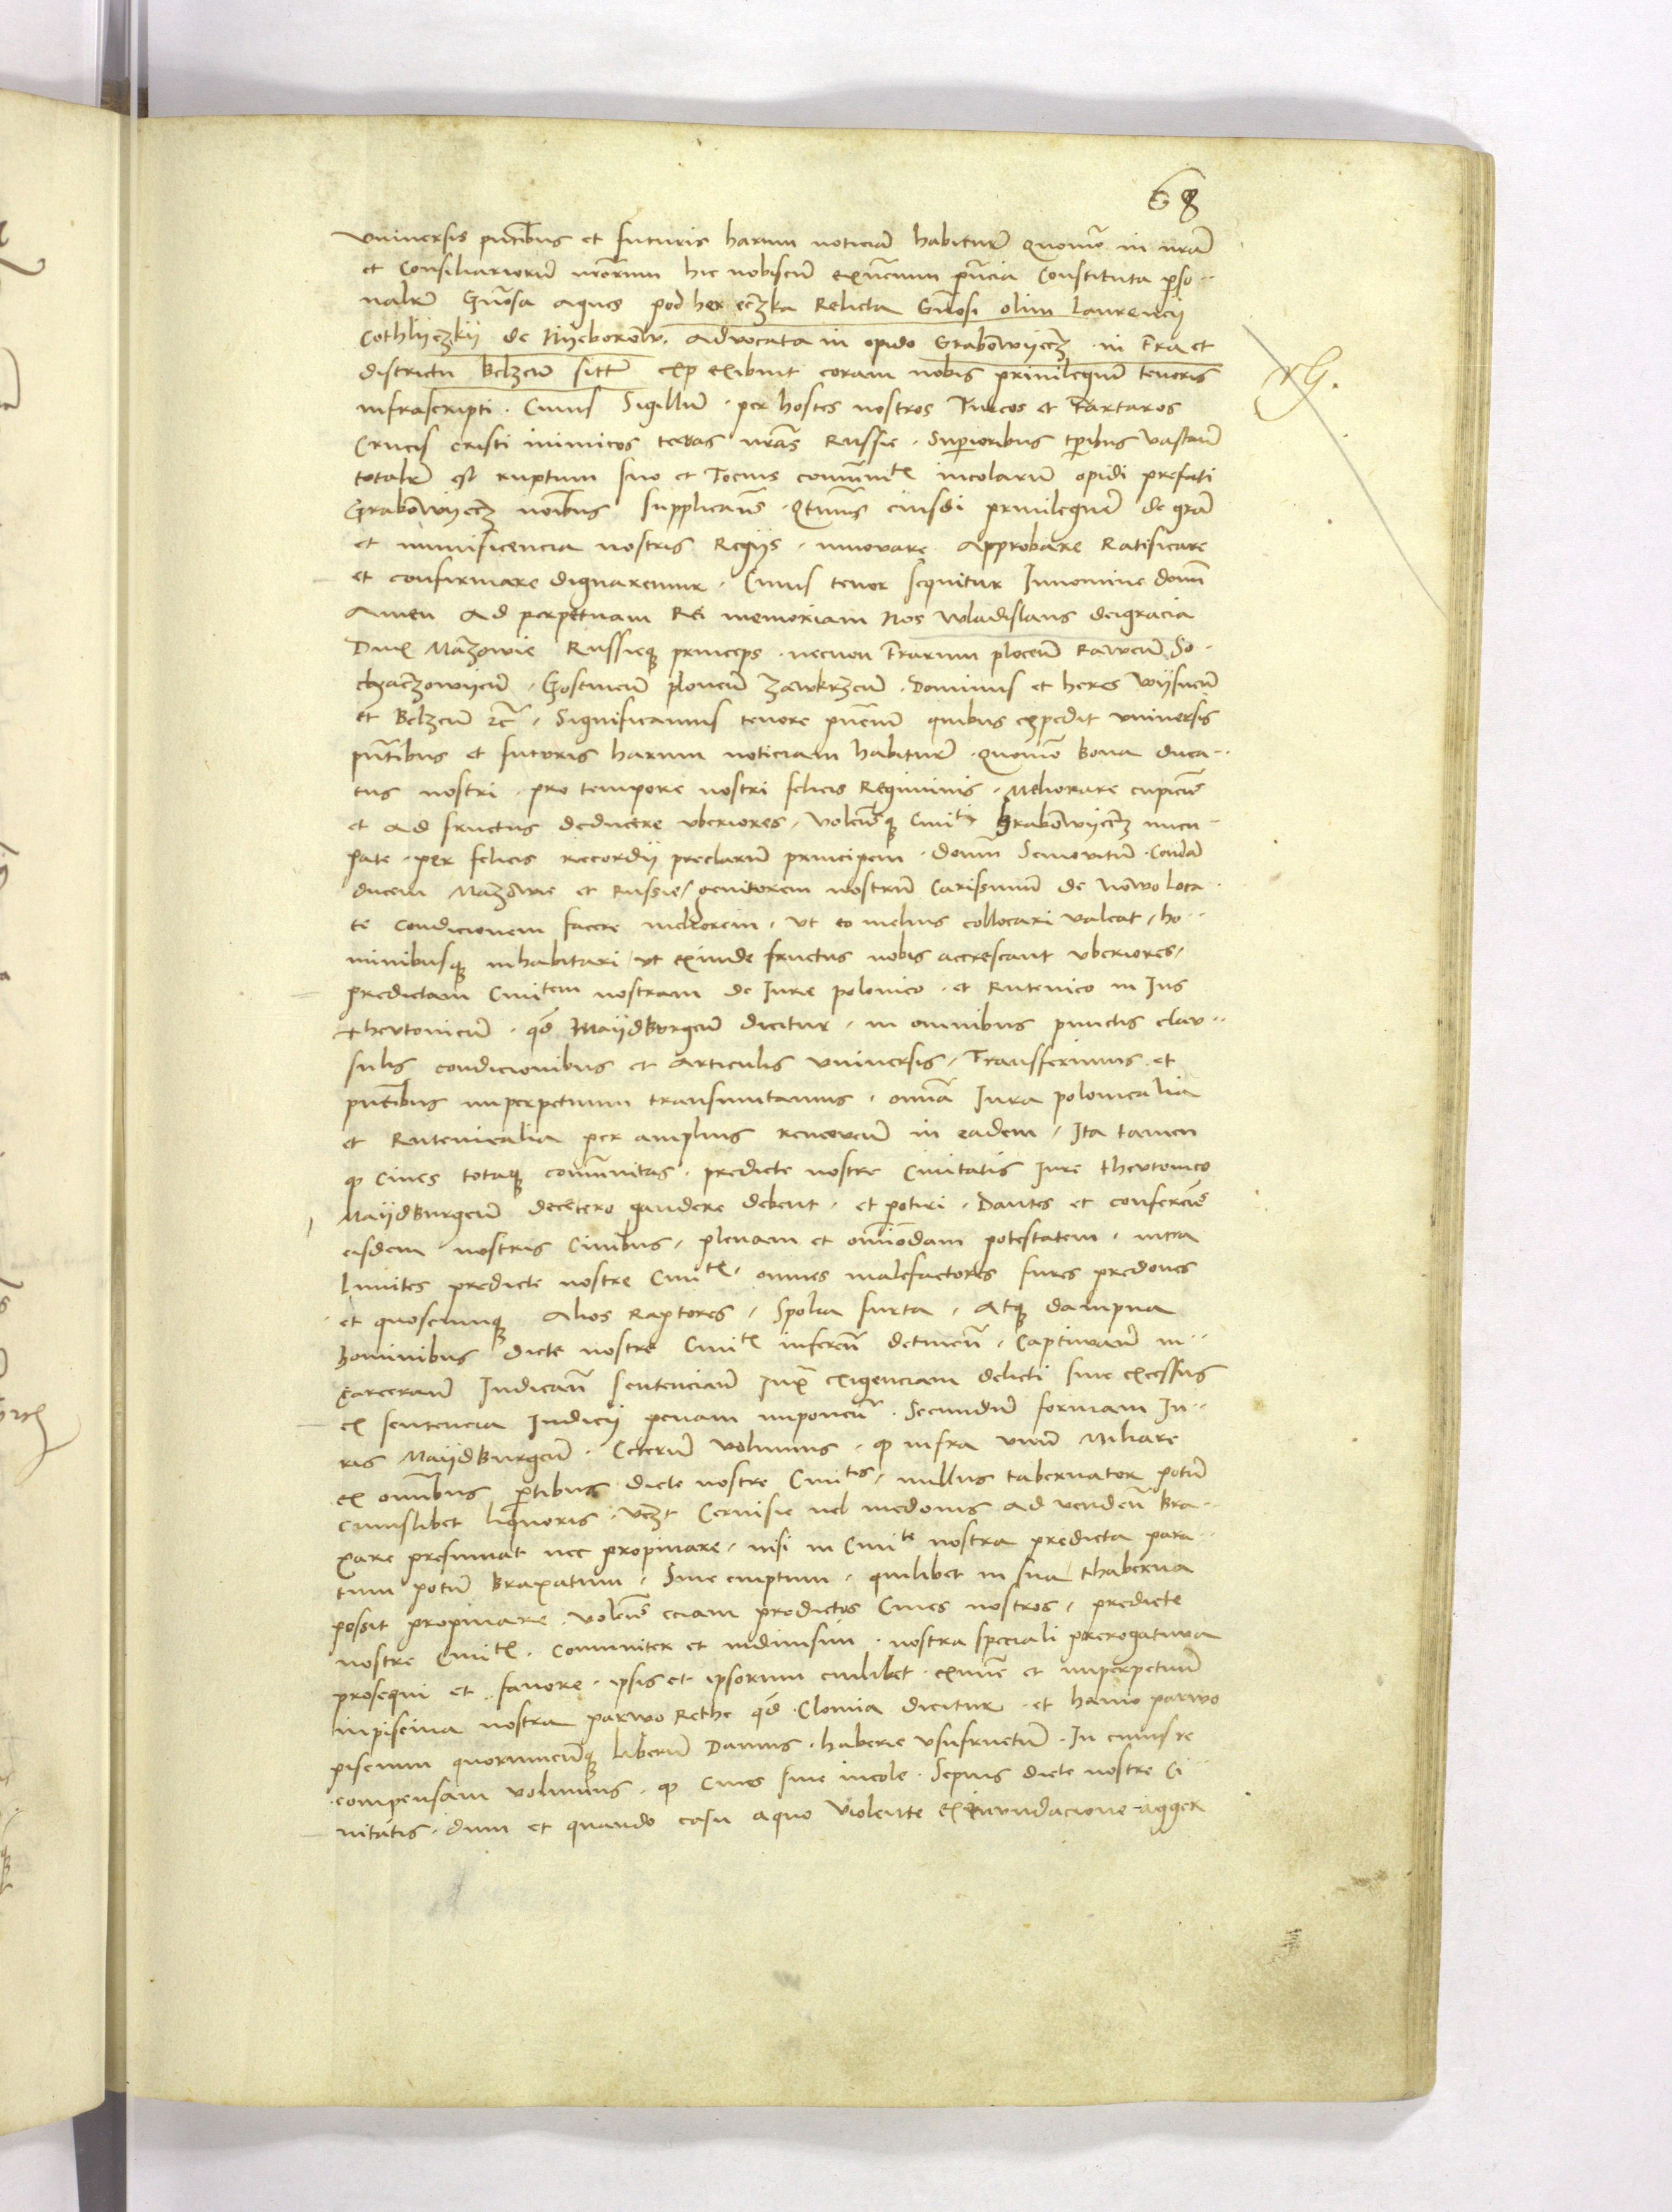 68
Universis pntibus et futuris harum noticiam habituris Quomo in nra
et Consiliariorum nrorum hic nobiscum existencium pncia Constituta perso-
naliter Gnosa agnes pod her eczka Relicta Gnosi olim laurencij
Cothlyczkij de Nyeborow, advocata in opido Grabowyecz in terra et
districtu Belzen sitt exp exibuit coram nobis privilegium tenoris
infrascripti. Cuius Sigillum per hostes nostros Turcos et Tartaros
Crucis cristi inimicos terras nras Russie Superioribus tpibus vastan
totaliter est ruptum suo et Tocius comunitatis incolarum opidi prefati
Grabowyecz noibus supplicans Qtnus eiusdi privilegium de gra
et munificencia nostris Regijs innovare Approbare Ratificare
et confirmare dignaremur. Cuius tenor sequitur In nomine domini
Amen Ad perpetuam Rei memoriam Nos Wladislaus dei gracia
Dux Mazowie Russieque princeps necnon terrarum plocen Rawen So-
chaczowyen Gostinen plonen Zawkrzen Dominus et heres Wysnen
et Belzen etc Significamus tenore pncium quibus expedit universis
pntibus et futuris harum noticiam habituris Quomo bona duca-
tus nostri pro tempore nostri felicis Regiminis Meliorare cupien
et ad fructus deducere uberiores, volensque Civitatis Grabowyecz nuncu-
pate per felicis recordij preclarum principem domn Semovitum Condam
ducem Mazowie et Russie genitorem nostrum Carissimum de Nowo loca-
te condicionem facere meliorem, ut eo melius collocari valeat, ho-
minibusque inhabitari ut exinde fructus nobis accrescant uberiores,
predictam Civitatem nostram de Iure polonico et Rutenico in Ius
theutonicum qd Maydburgen dicitur in omnibus punctis clau-
sulis condicionibus et articulis universis, Transferimus et
pntibus inperpetuum transmutamus, omnia Iura polonicalia
et Rutenicalia per amplius removen in eadem, Ita tamen
qp Cives totaque comunitas predicte nostre Civitatis Iure theutonico
Maydburgen decetero gaudere debent et potiri. Dantes et conferen
eisdem nostris Civibus, plenam et omnimodam potestatem, intra
limites predicte nostre Civitatis, omnes malefactores fures predones
et quoscumque Alios Raptores, Spolia furta, atque dampna
hominibus dicte nostre Civitatis inferen detinen, Captivare in-
carceran Iudican sentencian Iux exigenciam delicti sive excessus
ex sentencia Iudicij penam imponen Secundum formam Iu-
ris Maydburgen. Ceterum volumus qp infra unum Miliare
ex omnibus ptibus dicte nostre Civitatis, nullus tabernator potum
cuiuslibet liquoris vezt Cervisie vel medonis ad venden bra-
xare presumat nec propinare, nisi in Civitate nostra predicta para-
tum potum braxatum, Sive emptum, quilibet in sua thaberna
possit propinare. volens eciam predictos Cives nostros, predicte
nostre Civitatis, comuniter et indivisim nostra speciali prerogativa
prosequi et favore ipsis et ipsorum cuilibet exnunc et inperpetuum
in piscina nostra parwo Rethe qd Clonia dicitur et hamo parwo
piscium quorumcunque liberum Damus habere usufructum. In cuius re
compensam volumus qp Cives sive incole Sepius dicte nostre Ci-
vitatis, dum et quando casu aquo violente ex inundacione agger